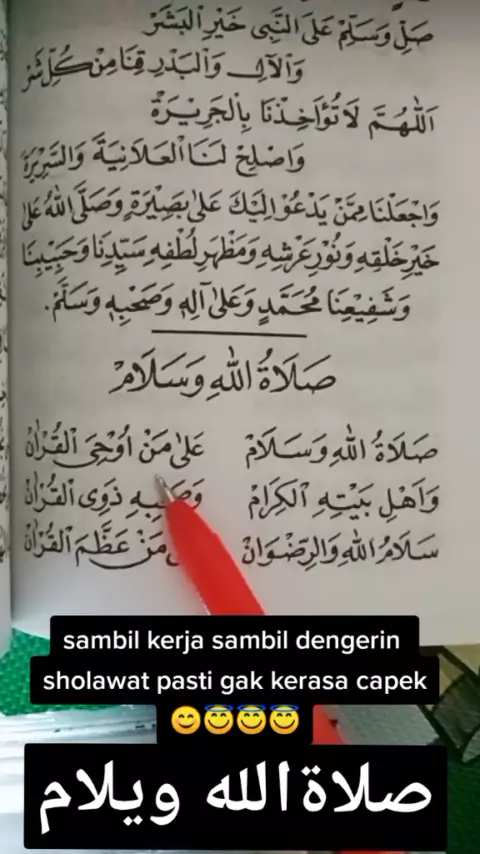 صَلِّ وَسَلِّمْ عَلَى النَّبِى خَيْرِ الْبَشَرْ
وَالْآلِ وَالْبَدْرِ قِنَا مِنْ كُلِّ شَرْ
اَللّٰهُمَّ لَا تُؤَاخِذْنَا بِالْجَرِيْرَةْ
وَاصْلِحْ لَنَا الْعَلَانِيَةَ وَالسَّرِيْرَةْ
وَاجْعَلْنَا مِمَّنْ يَدْعُوْا اِلَيْكَ عَلٰى بَصِيْرَةٍ وَصَلَّى اللهُ عَلٰى
خَيْرِ خَلْقِهِ وَنُوْرِ عَرْشِهِ وَمَظْهَرِ لُطْفِهِ سَيِّدِنَا وَحَبِيْبِنَا
وَشَفِيْعِنَا مُحَمَّدٍ وَعَلٰى آلِهِ وَصَحْبِهِ وَسَلَّمْ.
صَلَاةُ اللهِ وَسَلَامْ
صَلَاةُ اللهِ وَسَلَامْ عَلٰى مَنْ اُوْحِىَ الْقُرْاٰنْ
وَاَهْلِ بَيْتِهِ الْكِرَامْ وَصَحْبِهِ ذَوِى الْقُرْاٰنْ
سَلَامُ اللهِ وَالرِّضْوَانْ مَنْ عَظَّمَ الْقُرْاٰنْ
sambil kerja sambil dengerin
sholawat pasti gak kerasa capek
😊😇😇😇
صلاة الله ويلام